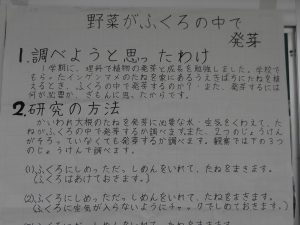 野菜がふくろの中で
発芽
1.調べようと思ったわけ
1学期に、理科で植物の発芽と成長を勉強しました。学校で
もらったインゲンマメのたねを家にあるうえきばちにたねを植
えるとき、ふくろの中で発芽するのか?また、発芽するには
何が必要か、ぎもんに思ったからです。
2.研究の方法
かいわれ大根のたねを発芽に必要な水・空気をくわえて、た
ねがふくろの中で発芽するか調べます。また、2つのじょうけん
がそろっていなくても発芽するか調べます。観察では下の3つ
のじょうけんで調べます。
(1)ふくろにしめっただっしめんをいれて、たねをまきます。
(ふくろはあけておきます。)
(2)ふくろにしめっただっしめんをいれて、たねをまきます。
(ふくろに空気が入らないようにチャックでしめておきます。)